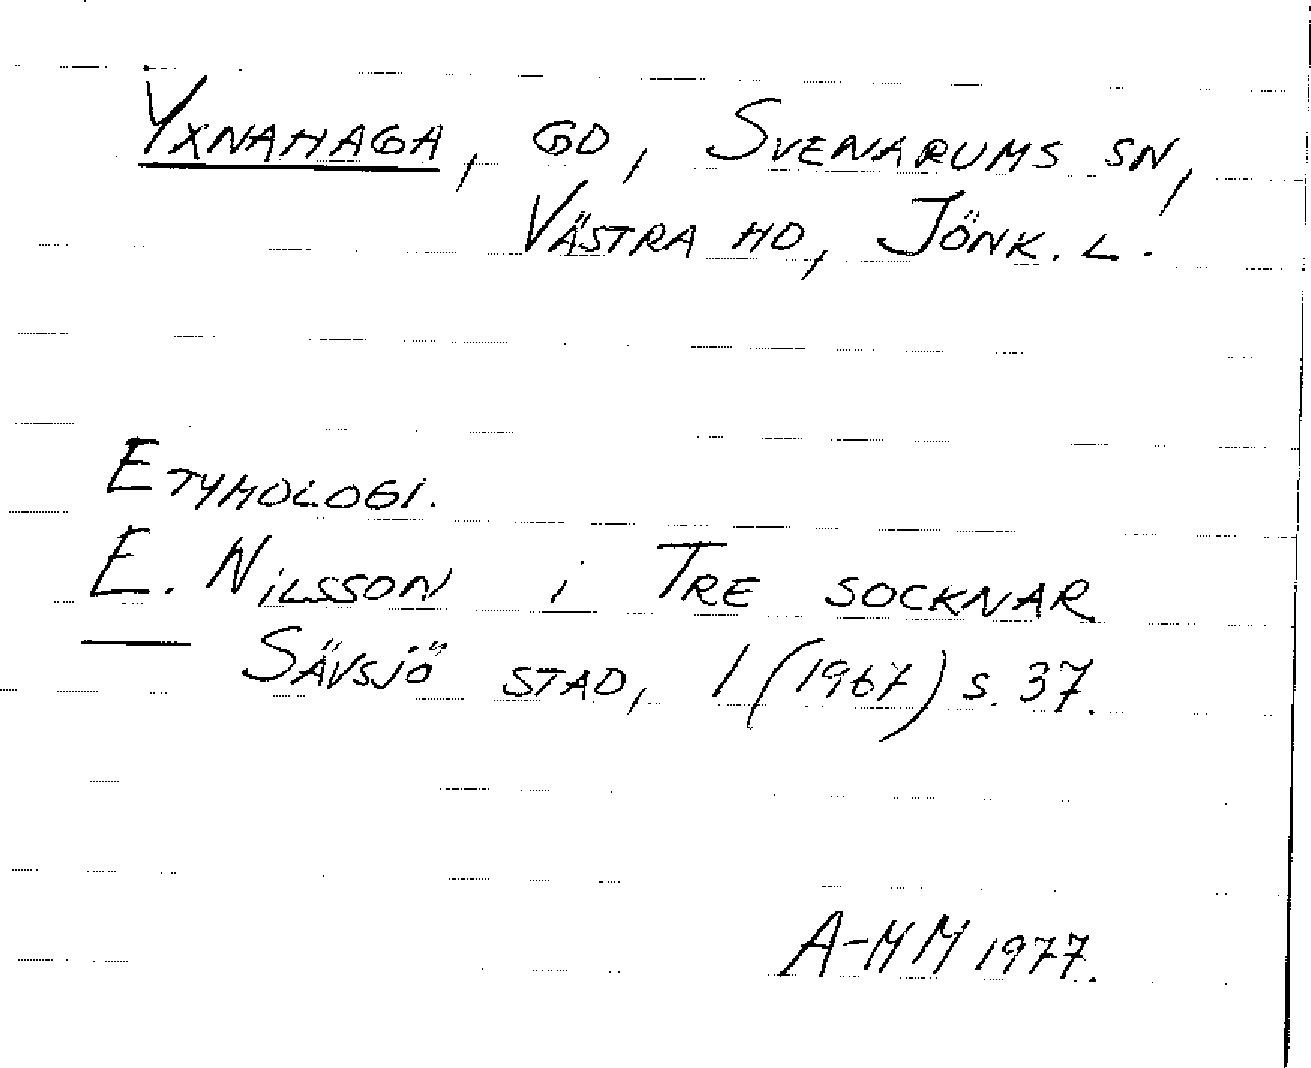 YXNAHAGA, GD, SVENARUMS SN,
VÄSTRA HD, JÖNK. L.
ETYMOLOGI.
E. NILSSON i TRE SOCKNAR
— SÄVSJÖ STAD, 1 (1967) S. 37.
A-MM 1977.